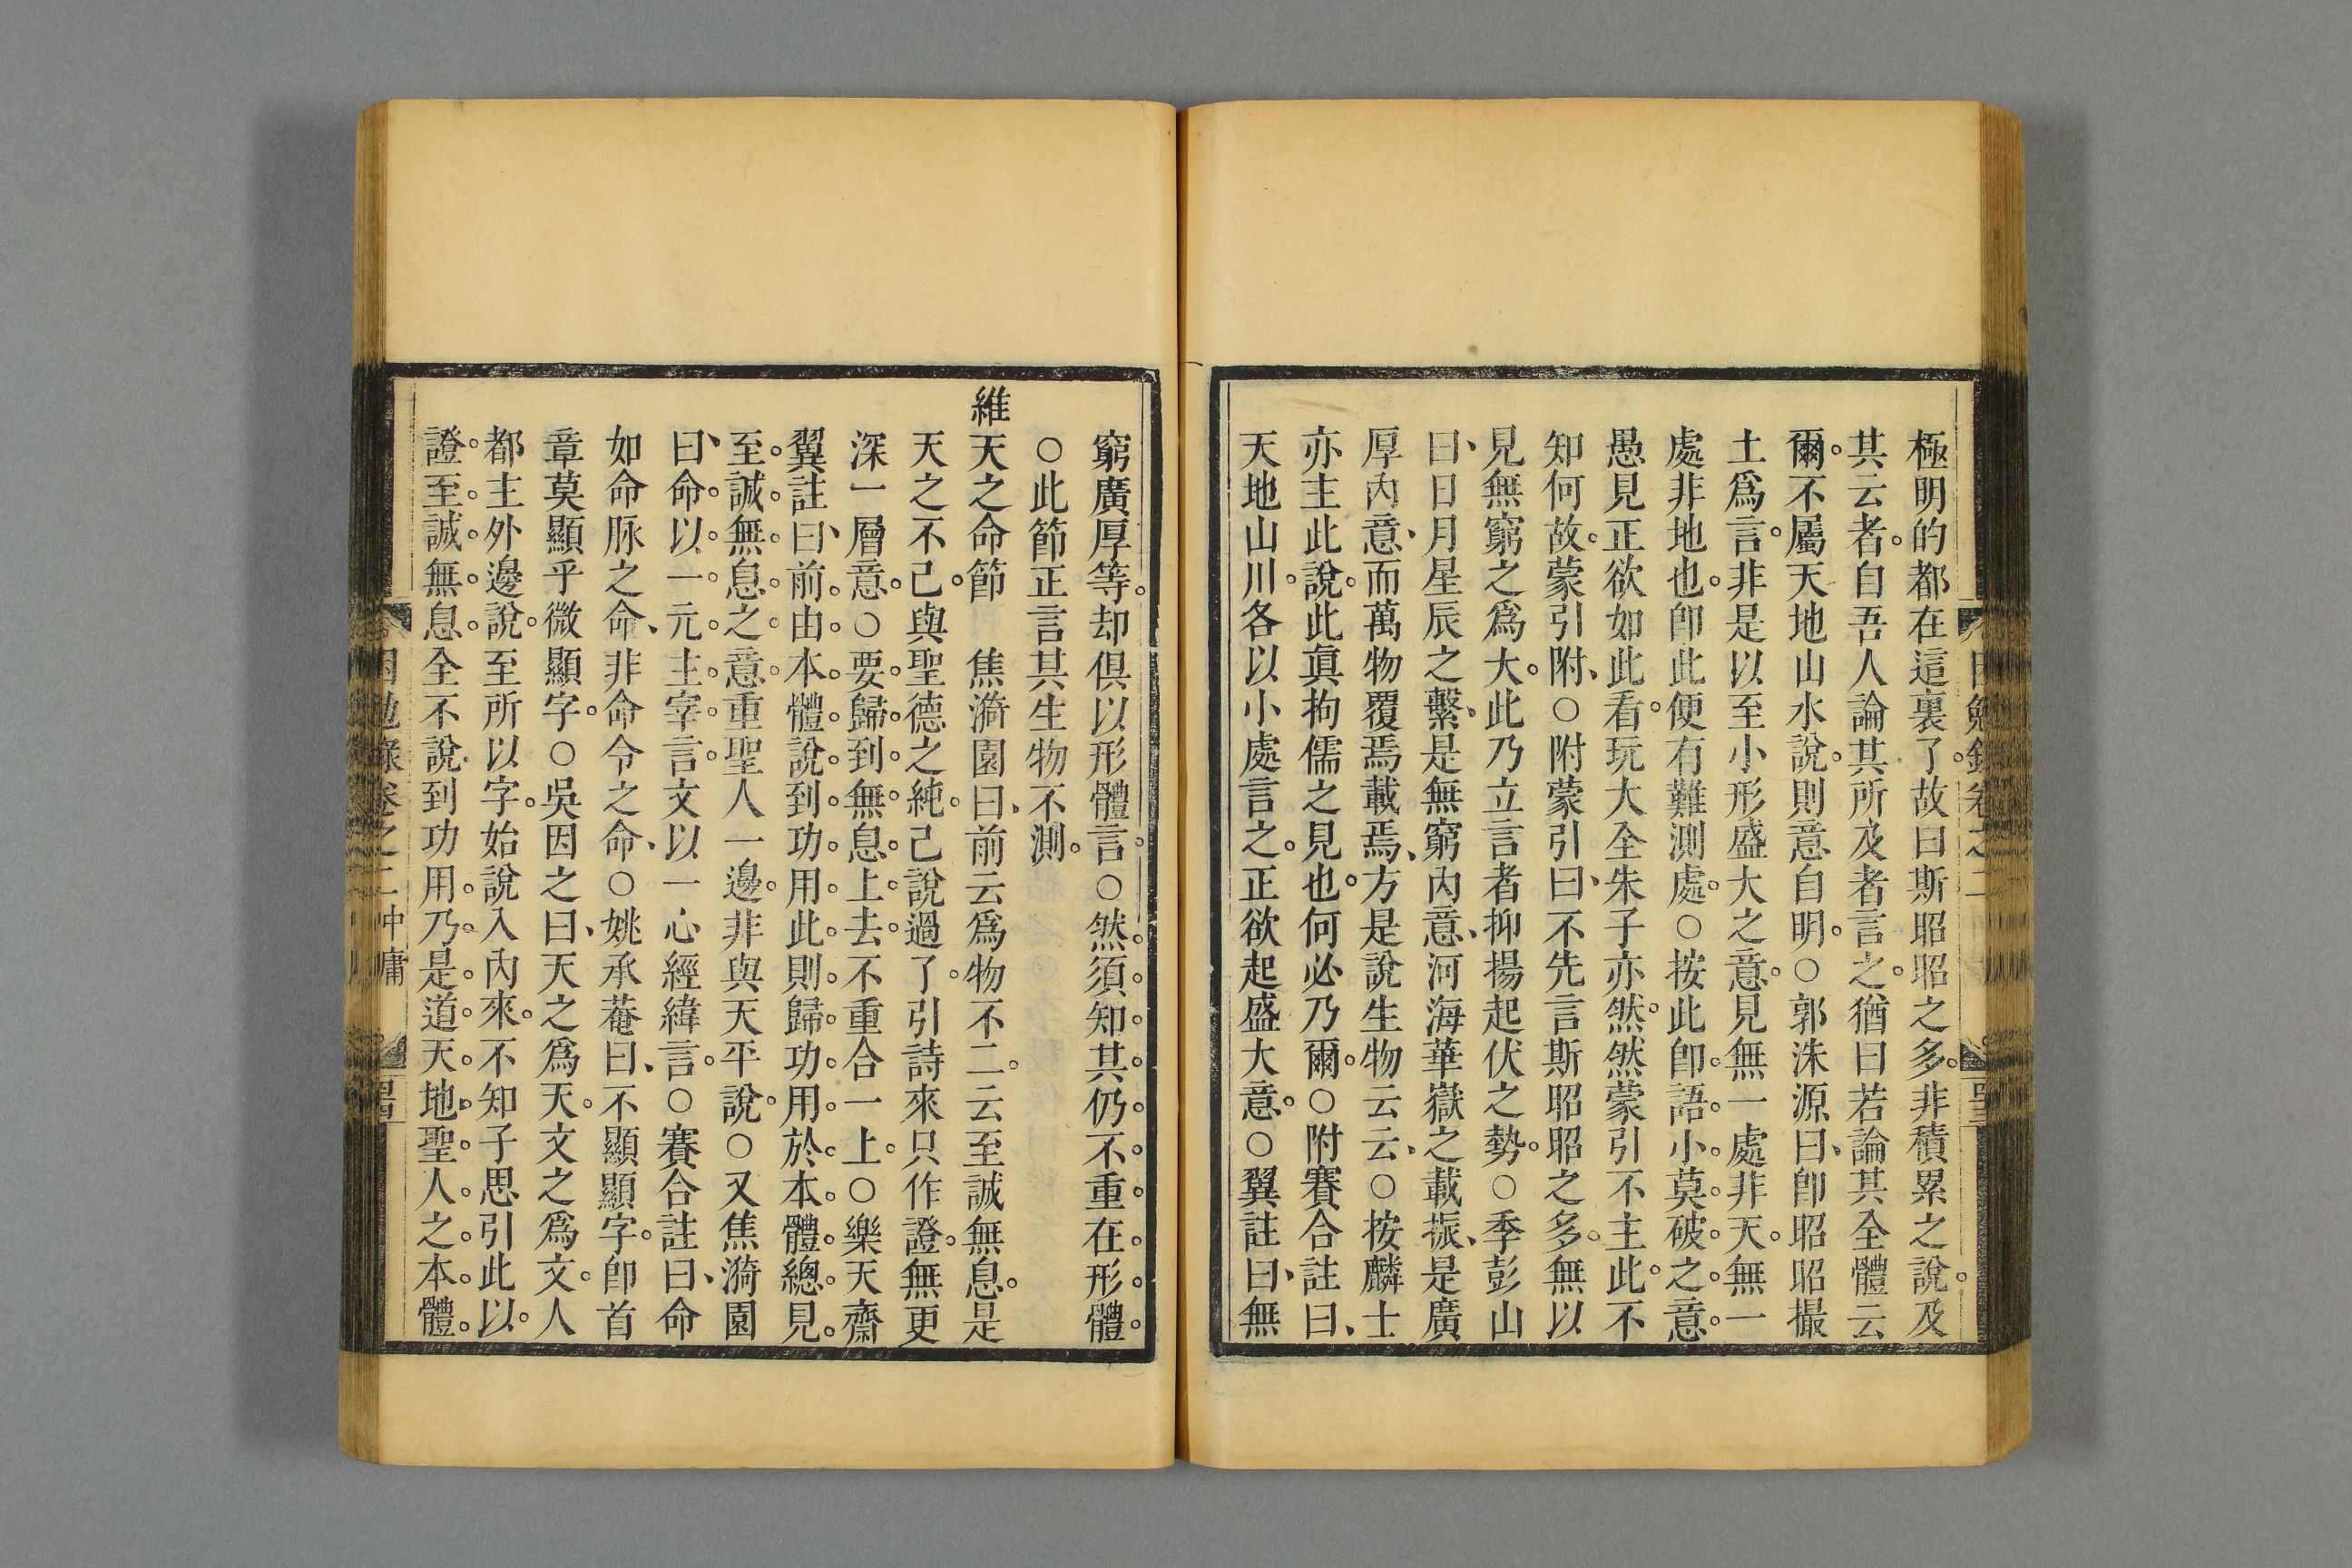 極明的都在這裏了。故曰斯昭昭之多。非積累之說。及
其云者。自吾人論其所及者言之。猶曰若論其全體云
爾。不屬天地山水說。則意自明。○郭洙源曰、卽昭昭撮
土爲言。非是以至小形盛大之意。見無一處非天。無一
處非地也。卽此便有難測處。○按此卽語小莫破之意。
愚見正欲如此看。玩大全朱子亦然。然蒙引不主此。不
知何故。蒙引附、○附蒙引曰、不先言斯昭昭之多。無以
見無窮之爲大。此乃立言者抑揚起伏之勢。○季彭山
曰、日月星辰之繫、是無窮內意、河海華嶽之載振、是廣
厚內意、而萬物覆焉載焉、方是說生物云云、○按麟士
亦主此說。此眞拘儒之見也。何必乃爾。○附賽合註曰、
天地山川。各以小處言之。正欲起盛大意。○翼註曰、無
窮廣厚等。却俱以形體言。○然須知其仍不重在形體
○此節正言其生物不測。
維天之命節　焦漪園曰、前云爲物不二。云至誠無息。是
天之不已。與聖德之純。已說過了。引詩來只作證。無更
深一層意。○要歸到無息上去。不重合一上。○樂天齋
翼註曰、前由本體說到功用。此則歸功用於本體。總見
至誠無息之意。重聖人一邊。非與天平說。○又焦漪園
曰、命以一元主宰言。文以一心經緯言。○賽合註曰、命
如命脉之命、非命令之命、○姚承菴曰、不顯顯字。卽首
章莫顯乎微顯字。○吳因之曰、天之爲天。文之爲文。人
都主外邊說。至所以字。始說入內來。不知子思引此以。
證至誠無息。全不說到功用。乃是道天地聖人之本體。
困勉錄卷之二 中庸